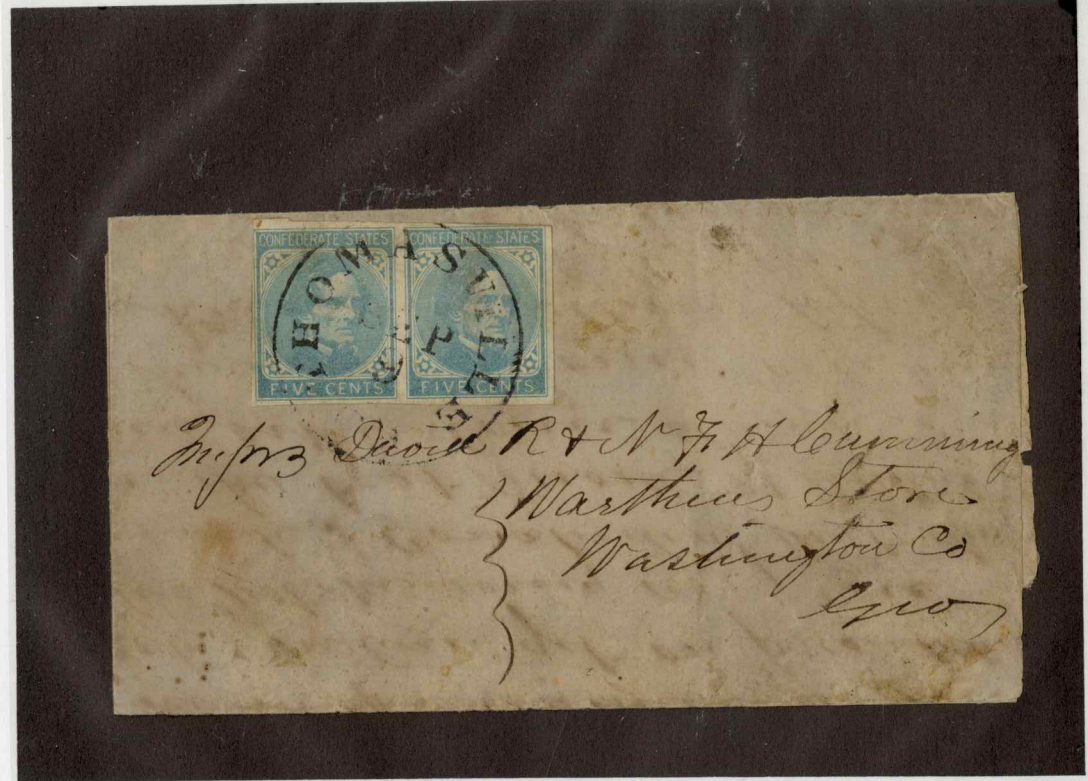 CONFEDERATE STATES CONFEDERATE STATES
FIVE CENTS FIVE CENTS
THOMASVILLE
SEP
Mssrs David R & N F H Cumming
Warthens Store
Washington Co
Geo